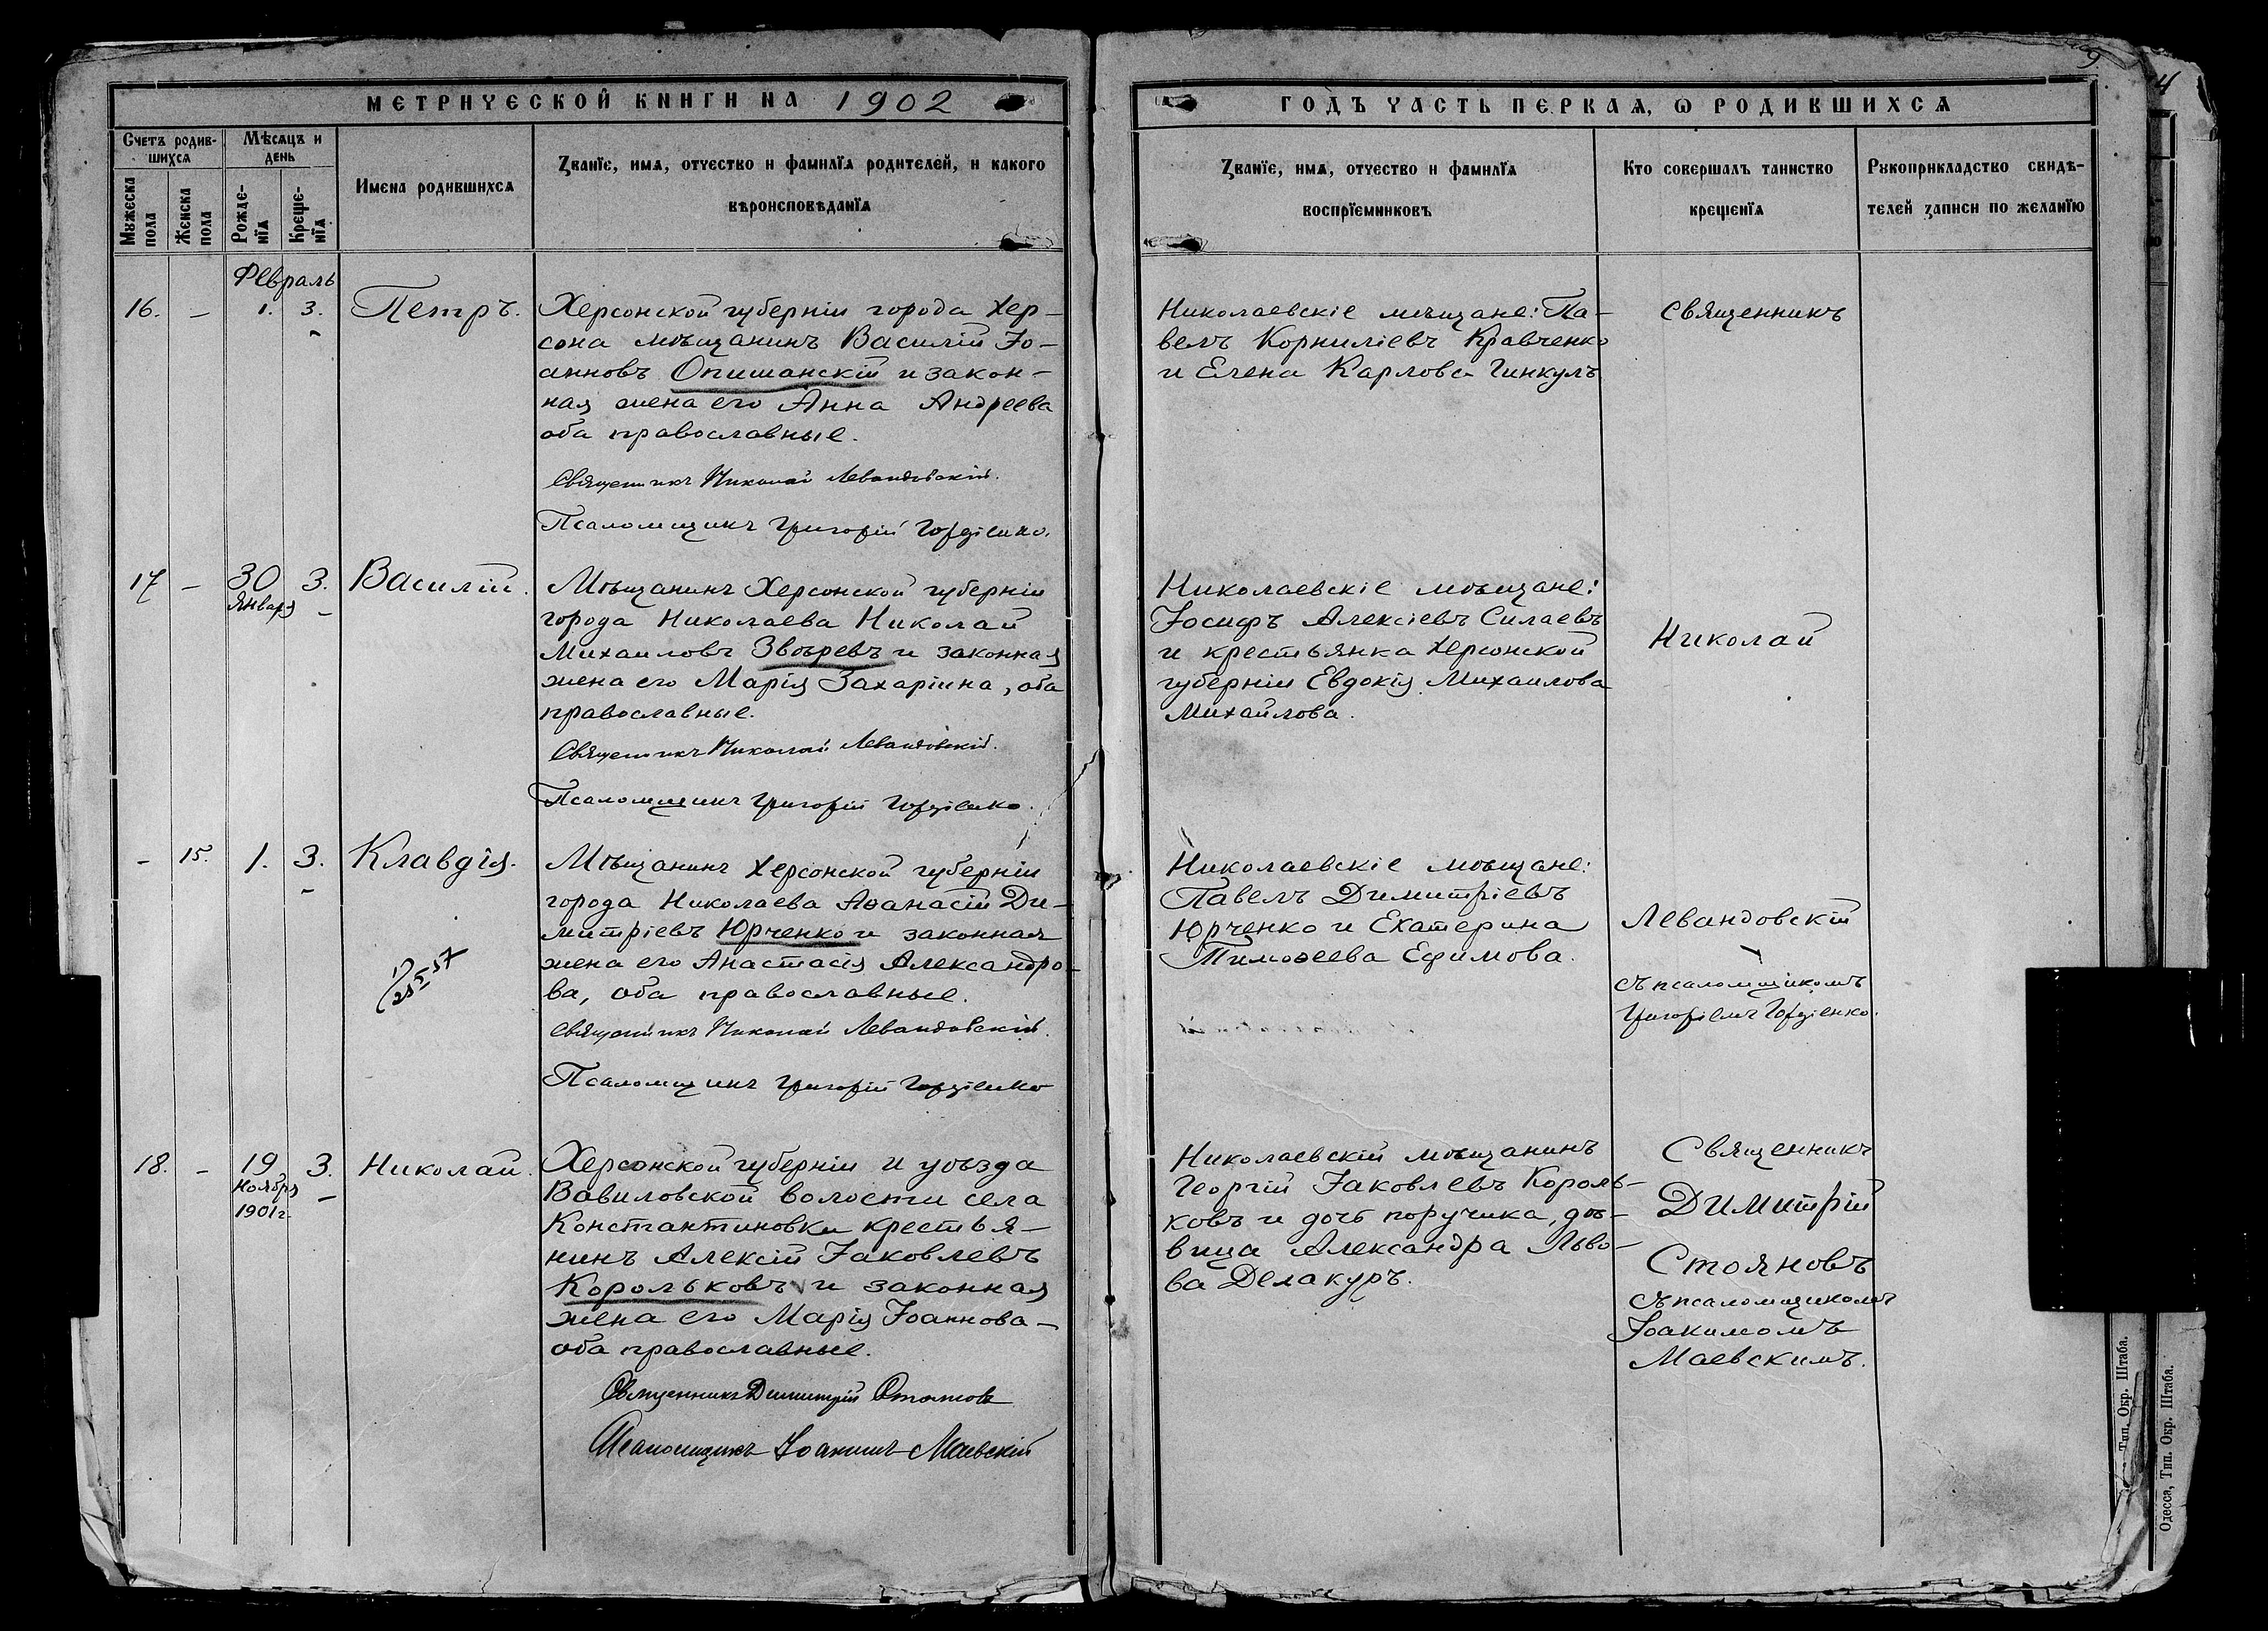 МЕТРИЧЕСКОЙ КНИГИ НА 1902
ГОДЪ ЧАСТЬ ПЕРВАЯ, Ѡ РОДИВШИХСЯ
Счетъ родив-
шихся
Мѣсяцъ и
день
Мужеска
пола
Женска
пола
Рожде-
нїя
Креще-
нїя
Имена родившихся
Званїе, имя, отчество и фамилїя родителей, и какого
вѣроисповѣданїя
Званїе, имя, отчество и фамилїя
воспрїемниковъ
Кто совершалъ таинство
крещенїя
Рукоприкладство свидѣ-
телей записи по желанїю
Февраль
16. – 1. 3. Петръ.
Херсонской губерніи города Хер-
сона мѣщанинъ Василій Іо-
анновъ Опишанскій и закон-
ная жена его Анна Андреева
оба православные.
Священникъ Николай Левандовскій.
Псаломщикъ Григорій Гордіенко.
Николаевскіе мѣщане: Па-
велъ Корниліевъ Кравченко
и Елена Карлова Гинкулъ
Священникъ
17 – 30 января 3. Василій.
Мѣщанинъ Херсонской губерніи
города Николаева Николай
Михаиловъ Звѣревъ и законная
жена его Марія Захаріина, оба
православные.
Священникъ Николай Левандовскій.
Псаломщикъ Григорій Гордіенко.
Николаевскіе мѣщане:
Іосифъ Алексіевъ Силаевъ
и крестьянка Херсонской
губерніи Евдокія Михаилова
Михайлова.
Николай
– 15. 1. 3. Клавдія.
Мѣщанинъ Херсонской губерніи
города Николаева Аѳанасій Ди-
митріевъ Юрченко и законная
жена его Анастасія Александро-
ва, оба православные.
Священникъ Николай Левандовскій.
Псаломщикъ Григорій Гордіенко
Николаевскіе мѣщане:
Павелъ Димитріевъ
Юрченко и Екатерина
Тимоѳеева Ефимова.
Левандовскій
съ псаломщикомъ
Григоріемъ Гордіенко.
18. – 19 ноября 1901 г. 3. Николай.
Херсонской губерніи и уѣзда
Вавиловской волости села
Константиновки крестья-
нинъ Алексій Іаковлевъ
Корольковъ и законная
жена его Марія Іоаннова-
оба православные.
Священникъ Димитрій Стояновъ
Псаломщикъ Іоакимъ Маевскій
Николаевскій мѣщанинъ
Георгій Іаковлевъ Король-
ковъ и дочь поручика, дѣ-
вица Александра Льво-
ва Делакуръ.
Священникъ
Димитрій
Стояновъ
съ псаломщикомъ
Іоакимомъ
Маевскимъ.
Тип. Окр. Штаба.
Одесса, Тип. Окр. Штаба.